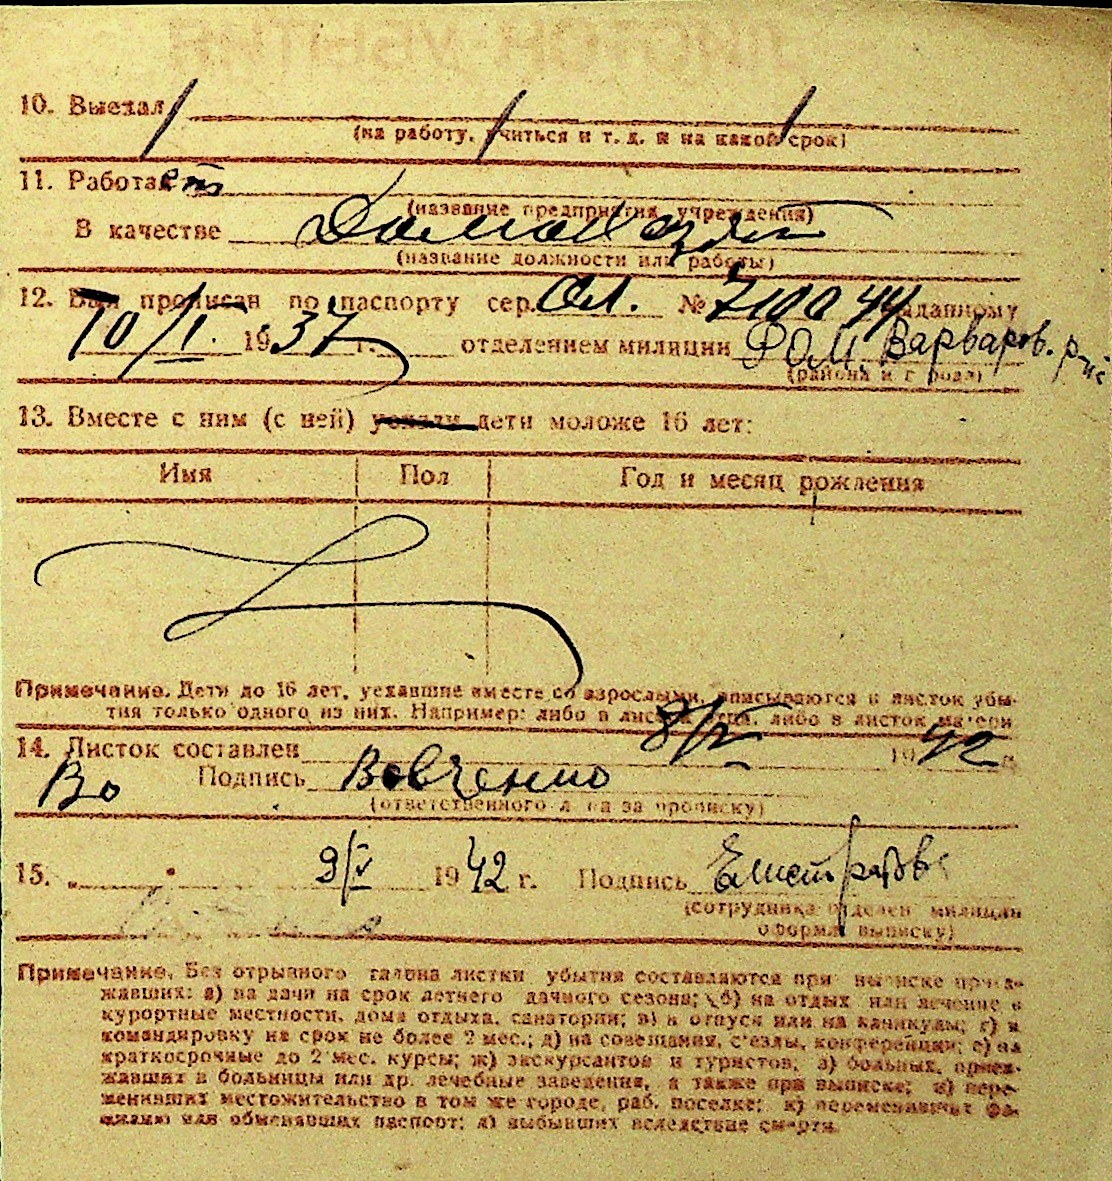 10. Выехал
(на работу, учиться и т. д. и на какой срок)
11. Работает
(название предприятия, учреждения)
В качестве Домохозяй
(название должности или работы)
12. Был прописан по паспорту сер. № 710044 выданному
10/I. 1937 г. отделением милиции РОМ. Варваров.
(района и города)
13. Вместе с ним (с ней) уехали дети моложе 16 лет:
Имя Пол Год и месяц рождения
Примечание. Дети до 16 лет, уехавшие вместе со взрослыми, вписываются в листок убы-
тия только одного из них. Например: либо в листок отца, либо в листок матери
14. Листок составлен 8/V 1942 г.
Во Подпись Вовченко
(ответственного лица за прописку)
15. 9/V 1942 г. Подпись Елистратова
(сотрудника отделен милиции
оформл выписку)
Примечание. Без отрывного талона листки убытия составляются при выписке приез-
жавших: а) на дачи на срок летнего дачного сезона; б) на отдых или лечение в
курортные местности, дома отдыха, санатории; в) в отпуск или на каникулы; г) в
командировку на срок не более 2 мес.; д) на совещания, с'езды, конференции; е) на
краткосрочные до 2 мес. курсы; ж) экскурсантов и туристов, з) больных, приез-
жавших в больницы или др. лечебные заведения, а также при выписке; и) пере-
менивших местожительство в том же городе, раб. поселке; к) переменивших фа-
милию или обменявших паспорт; л) выбывших вследствие смерти.